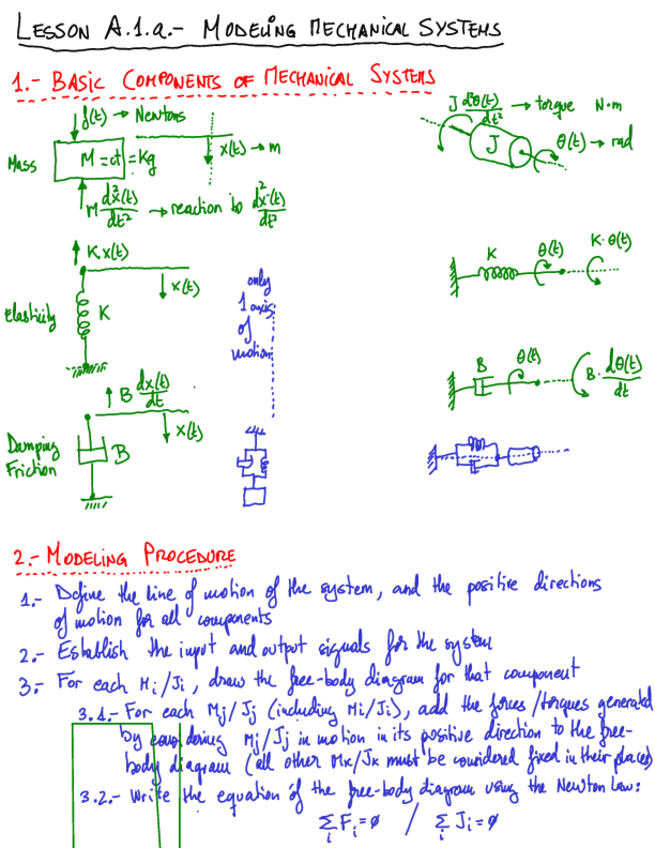 LESSON A.1.a.- MODELING MECHANICAL SYSTEMS
1.- BASIC COMPONENTS OF MECHANICAL SYSTEMS
f(t) → Newtons
x(t) → m
Mass
M = ct = Kg
M d²x(t)/dt² → reaction to d²x(t)/dt²
J d²θ(t)/dt² → torque N·m
J
θ(t) → rad
K x(t)
x(t)
Elasticity
K
only
1 axis
of
motion
K
θ(t)
K·θ(t)
B dx(t)/dt
x(t)
Damping
Friction
B
B
θ(t)
B· dθ(t)/dt
2.- MODELING PROCEDURE
1.- Define the line of motion of the system, and the positive directions
of motion for all components
2.- Establish the input and output signals for the system
3.- For each Mi/Ji, draw the free-body diagram for that component
3.1.- For each Mj/Jj (including Mi/Ji), add the forces/torques generated
by considering Mj/Jj in motion in its positive direction to the free-
body diagram (all other Mk/Jk must be considered fixed in their places)
3.2.- Write the equation of the free-body diagram using the Newton Law:
∑i Fi = ø / ∑i Ji = ø